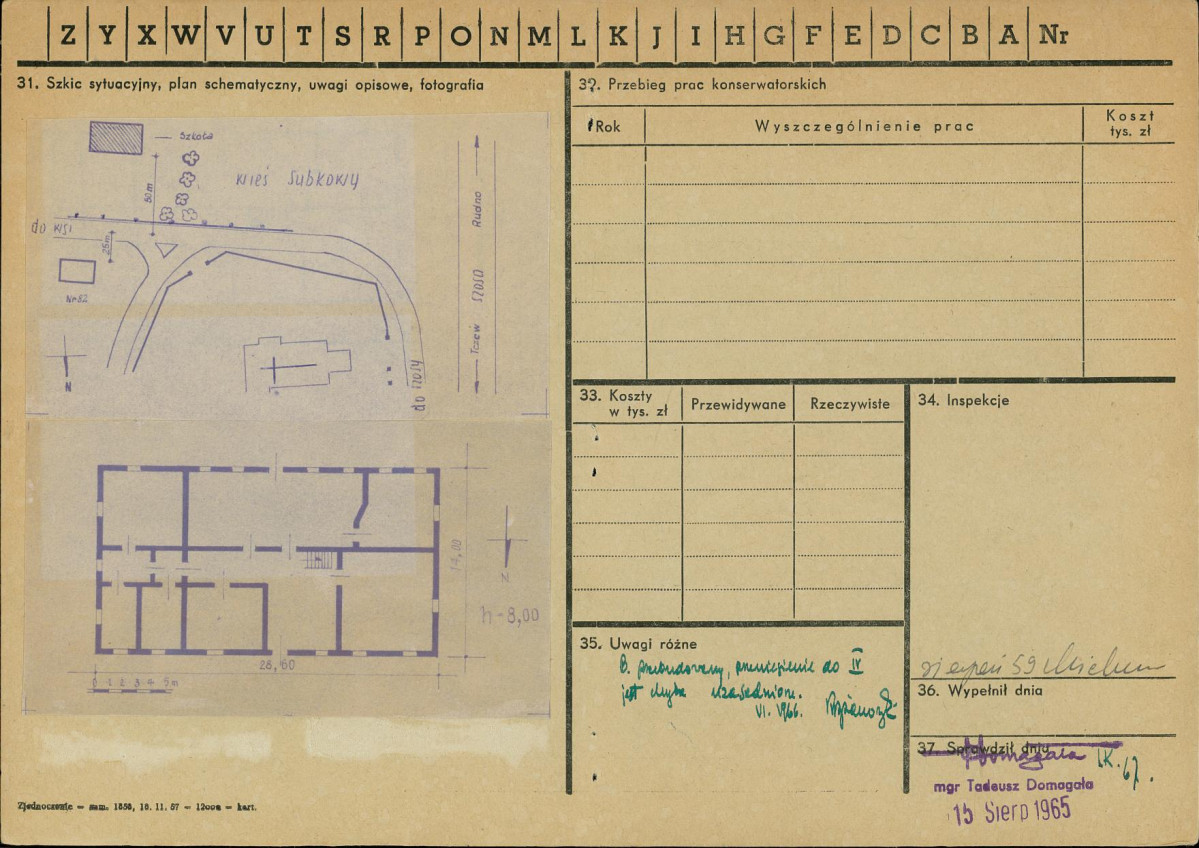 Z Y X W V U T S R P O N M L K J I H G F E D C B A Nr
31. Szkic sytuacyjny, plan schematyczny, uwagi opisowe, fotografia
Szkoła
50m
wieś Subkowy
do wsi
25m
Nr 52
N
do szosy
Tczew szosa Rudno
14,00
N
h-8,00
28,60
0 1 2 3 4 5m
Zjednoczenie — zam. 1858, 18. 11. 57 — 12000 — kart.
32. Przebieg prac konserwatorskich
Rok
Wyszczególnienie prac
Koszt
tys. zł
33. Koszty
w tys. zł
Przewidywane
Rzeczywiste
34. Inspekcje
35. Uwagi różne
B. przebudowany, przeniesienie do IV
jest chyba uzasadnione.
VI. 1966.
sierpień 59
36. Wypełnił dnia
37. Sprawdził dnia
Domagała
IX. 67.
mgr Tadeusz Domagała
15 Sierp 1965